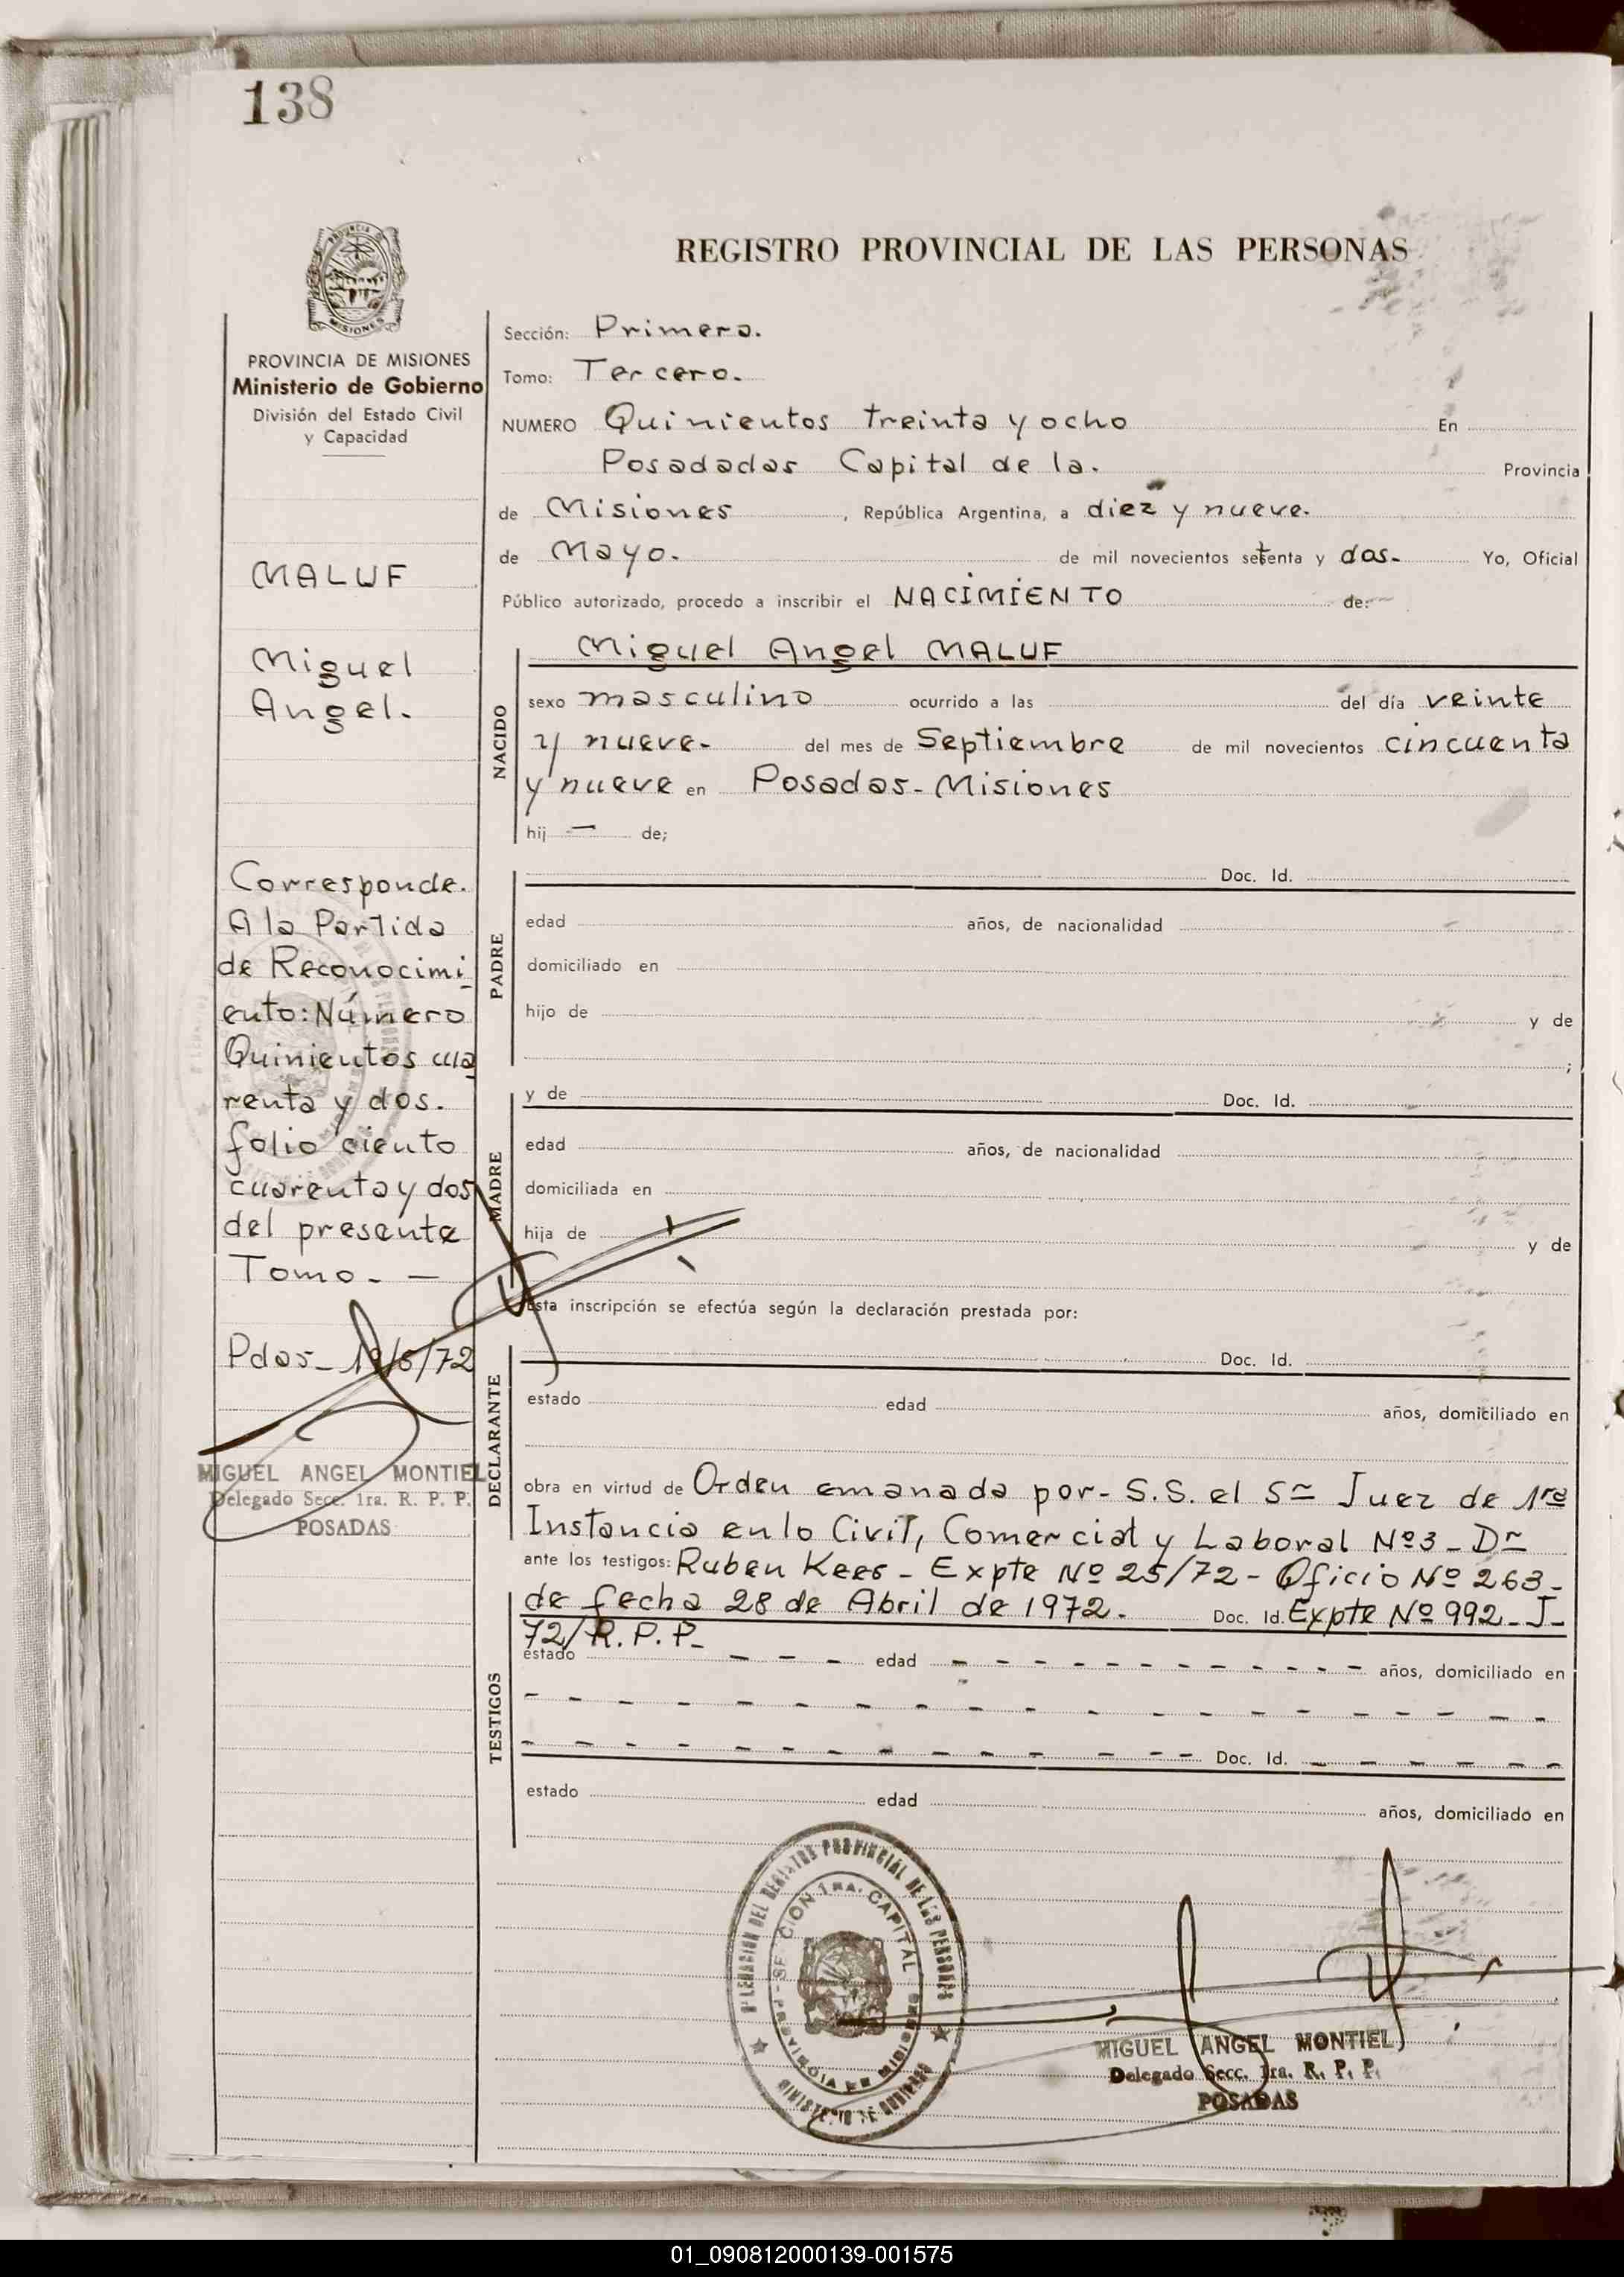 138
REGISTRO PROVINCIAL DE LAS PERSONAS
PROVINCIA DE MISIONES
Ministerio de Gobierno
División del Estado Civil
y Capacidad
MALUF
Miguel
Angel.
Corresponde.
A la Partida
de Reconocimi
ento: Número
Quinientos cua
renta y dos.
folio ciento
cuarenta y dos
del presente
Tomo. —
Pdas- 19/5/72
MIGUEL ANGEL MONTIEL
Delegado Secc. 1ra. R. P. P.
POSADAS
Sección: Primera.
Tomo: Tercero.
NUMERO Quinientos treinta y ocho En
Posadadas Capital de la. Provincia
de Misiones, República Argentina, a diez y nueve.
de Mayo. de mil novecientos setenta y dos- Yo, Oficial
Público autorizado, procedo a inscribir el NACIMIENTO de:
NACIDO
Miguel Angel MALUF
sexo masculino ocurrido a las del día veinte
y nueve- del mes de Septiembre de mil novecientos cincuenta
y nueve en Posadas-Misiones
hij — de;
PADRE
Doc. Id.
edad años, de nacionalidad
domiciliado en
hijo de y de
;
MADRE
y de Doc. Id.
edad años, de nacionalidad
domiciliada en
hija de y de
Esta inscripción se efectúa según la declaración prestada por:
DECLARANTE
Doc. Id.
estado edad años, domiciliado en
obra en virtud de Orden emanada por- S.S. el Sr Juez de 1ra
Instancia en lo Civil, Comercial y Laboral Nº3- Dr
ante los testigos: Ruben Kees - Expte Nº 25/72- Oficio Nº 263-
de fecha 28 de Abril de 1972. Doc. Id. Expte Nº 992-J-
72/R.P.P-
TESTIGOS
estado - - - edad - - - - - - - - - - - años, domiciliado en
Doc. Id.
estado edad años, domiciliado en
DELEGACION DEL REGISTRO PROVINCIAL DE LAS PERSONAS
SECCION 1RA. CAPITAL
PROVINCIA DE MISIONES
MINISTERIO DE GOBIERNO
MIGUEL ANGEL MONTIEL
Delegado Secc. 1ra. R. P. P.
POSADAS
01_090812000139-001575